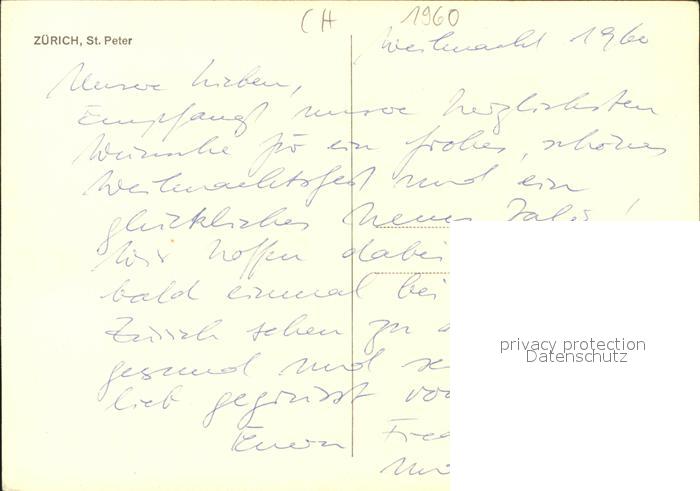 CH 1960
ZÜRICH, St. Peter
Weihnacht 1960
Unsere Lieben,
Empfangt unsere herzlichsten
Wünsche für ein frohes, schönes
Weihnachtsfest und ein
glückliches Neues Jahr!
Wir hoffen dabei
bald einmal bei
Zürich sehen zu
gesund und
lieb gegrüsst
Euern
privacy protection
Datenschutz